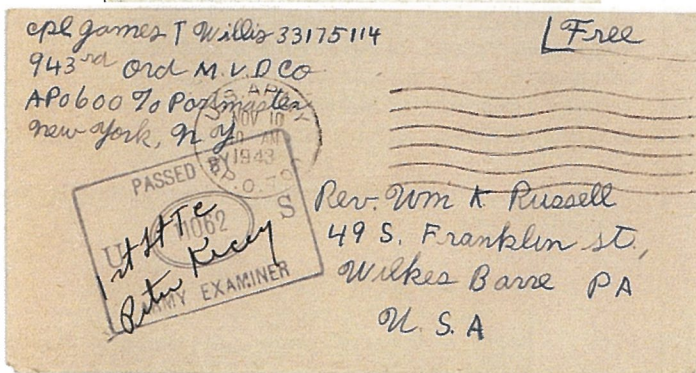 Cpl James T Willis 33175114
Free
943rd Ord M.V.D Co
APO 600 % Postmaster
New York, N Y
U.S. ARMY
NOV 10
AM
1943
A.P.O.
PASSED BY
U S
11062
ARMY EXAMINER
1st Lt TC
Peter
Rev. Wm K Russell
49 S. Franklin St.,
Wilkes Barre PA
U. S. A